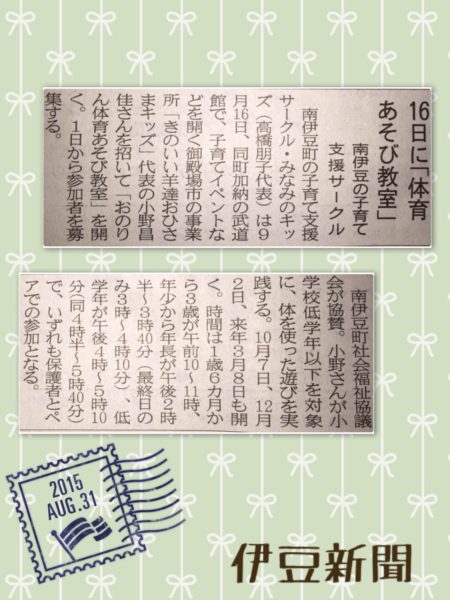 16日に「体育
あそび教室」
南伊豆の子育て
支援サークル
南伊豆町の子育て支援
サークル・みなみのキッ
ズ(高橋朋子代表)は9
月16日、同町加納の武道
館で、子育てイベントな
どを開く御殿場市の事業
所「きのいい羊達おひさ
まキッズ」代表の小野昌
佳さんを招いて「おのり
ん体育あそび教室」を開
く。1日から参加者を募
集する。
南伊豆町社会福祉協議
会が協賛。小野さんが小
学校低学年以下を対象
に、体を使った遊びを実
践する。10月7日、12月
2日、来年3月8日も開
く。時間は1歳6カ月か
ら3歳が午前10〜11時、
年少から年長が午後2時
半〜3時40分(最終日の
み3時〜4時10分)、低
学年が午後4時〜5時10
分(同4時半〜5時40分)
で、いずれも保護者とペ
アでの参加となる。
2015
AUG.31
伊豆新聞